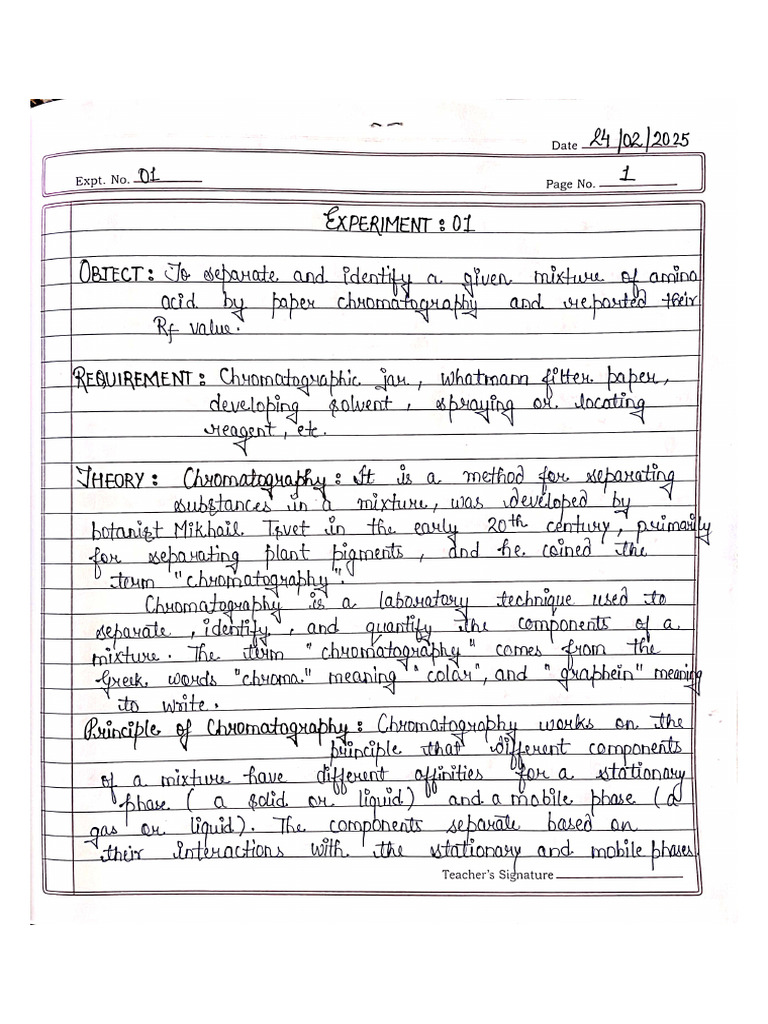 Date 24/02/2025
Expt. No. 01
Page No. 1
EXPERIMENT: 01
OBJECT: To separate and identify a given mixture of amino
acid by paper chromatography and reported their
Rf value.
REQUIREMENT: Chromatographic jar, whatmann filter paper,
developing solvent, spraying or locating
reagent, etc.
THEORY: Chromatography: It is a method for separating
substances in a mixture, was developed by
botanist Mikhail Tsvet in the early 20th century, primarily
for separating plant pigments, and he coined the
term "chromatography".
Chromatography is a laboratory technique used to
separate, identify, and quantify the components of a
mixture. The term "chromatography" comes from the
Greek words "chroma" meaning "color", and "graphein" meaning
to write.
Principle of Chromatography: Chromatography works on the
principle that different components
of a mixture have different affinities for a stationary
phase (a solid or liquid) and a mobile phase (a
gas or liquid). The components separate based on
their interactions with the stationary and mobile phases.
Teacher's Signature